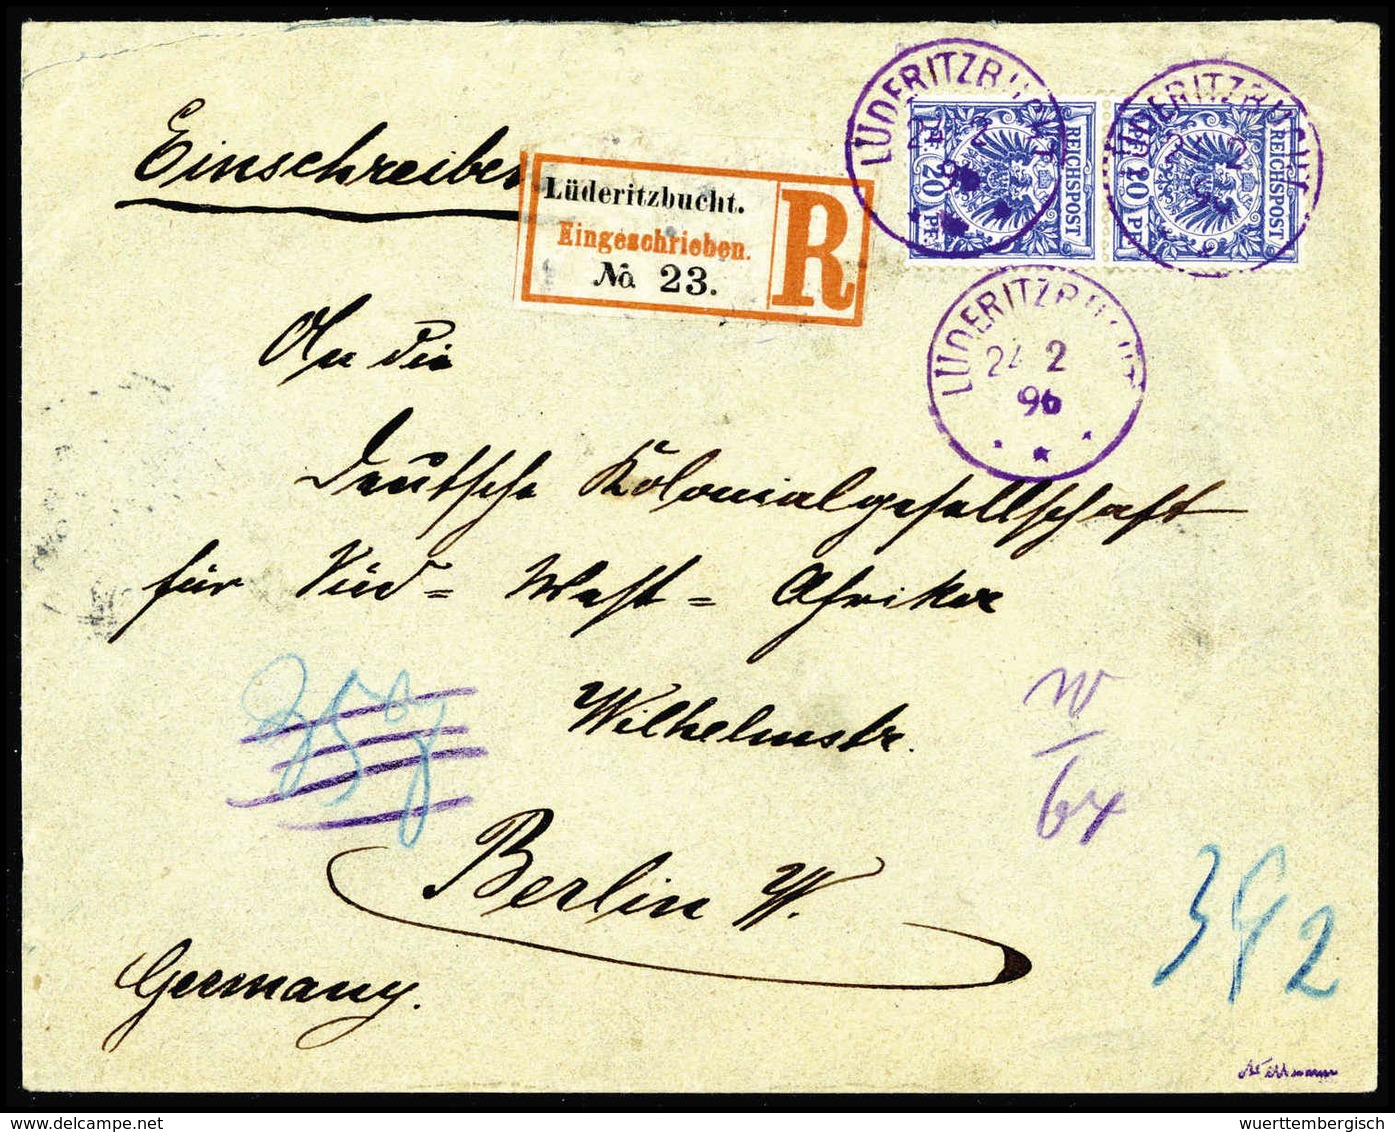 Einschreiben
Lüderitzbucht.
Eingeschrieben.
No. 23.
R
LÜDERITZBUCHT
REICHSPOST
20 PF.
LÜDERITZBUCHT
REICHSPOST
20 PF.
LÜDERITZBUCHT
24 2
96
An die
Deutsche Kolonialgesellschaft
für Süd = West = Afrika
Wilhelmstr.
W
64
Berlin W.
392
Germany.
delcampe.net
wuerttembergisch